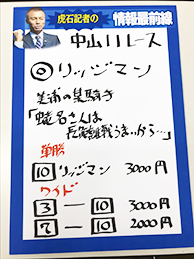 虎石記者の
情報最前線
中山11レース
◎リッジマン
美浦の某騎手
「蛯名さんは
長距離戦うまいから…」
単勝
10 リッジマン 3000円
ワイド
3 ー 10 3000円
7 ー 10 2000円